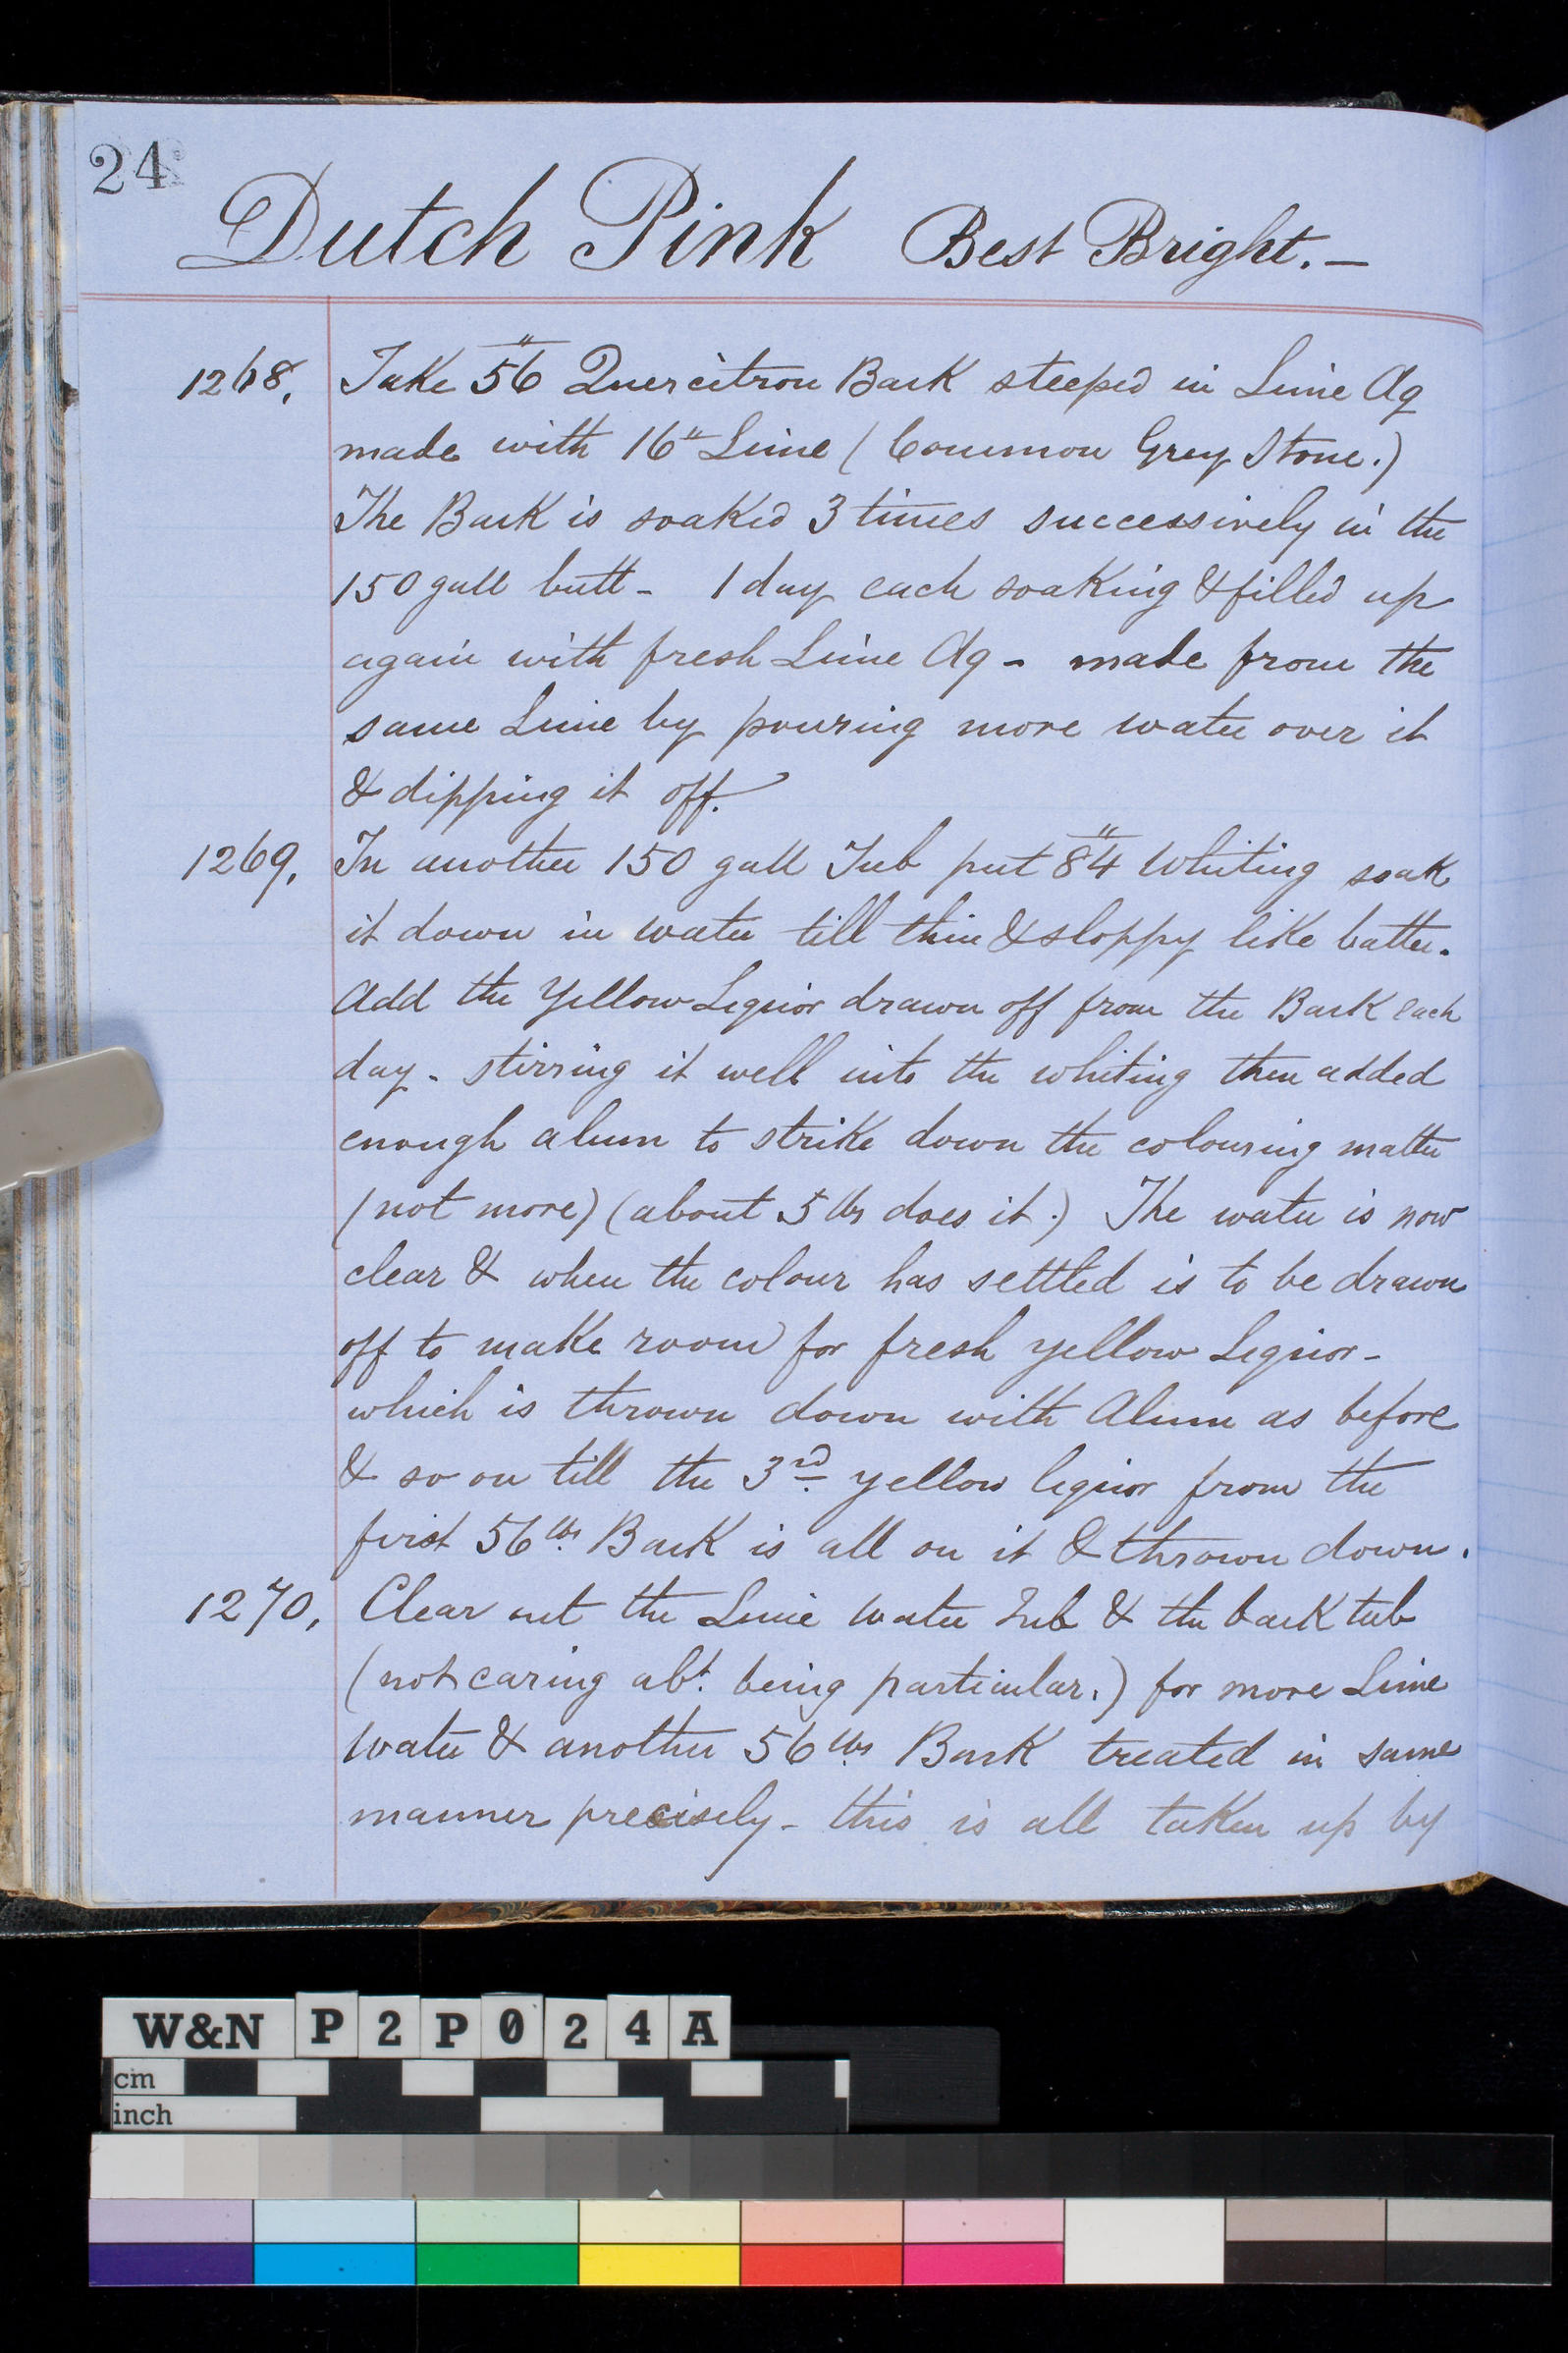 24
Dutch Pink Best Bright. —
1268, Take 56" Quercitron Bark steeped in Lime Aq
made with 16" Lime (Common Grey Stone.)
The Bark is soaked 3 times successively in the
150 gall butt - 1 day each soaking & filled up
again with fresh Lime Aq - made from the
same Lime by pouring more water over it
& dipping it off.
1269, In another 150 gall Tub put 84" Whiting soak
it down in water till thin & sloppy like batter.
Add the Yellow Liquor drawn off from the Bark each
day - stirring it well into the whiting then added
enough alum to strike down the colouring matter
(not more) (about 5 lbs does it.) The water is now
clear & when the colour has settled is to be drawn
off to make room for fresh yellow Liquor -
which is thrown down with Alum as before
& so on till the 3rd yellow liquor from the
first 56 lbs. Bark is all on it & thrown down.
1270, Clear out the Lime Water Tub & the bark tub
(not caring abt. being particular.) for more Lime
Water & another 56 lbs. Bark treated in same
manner precisely - this is all taken up by
W&N P2P024A
cm
inch